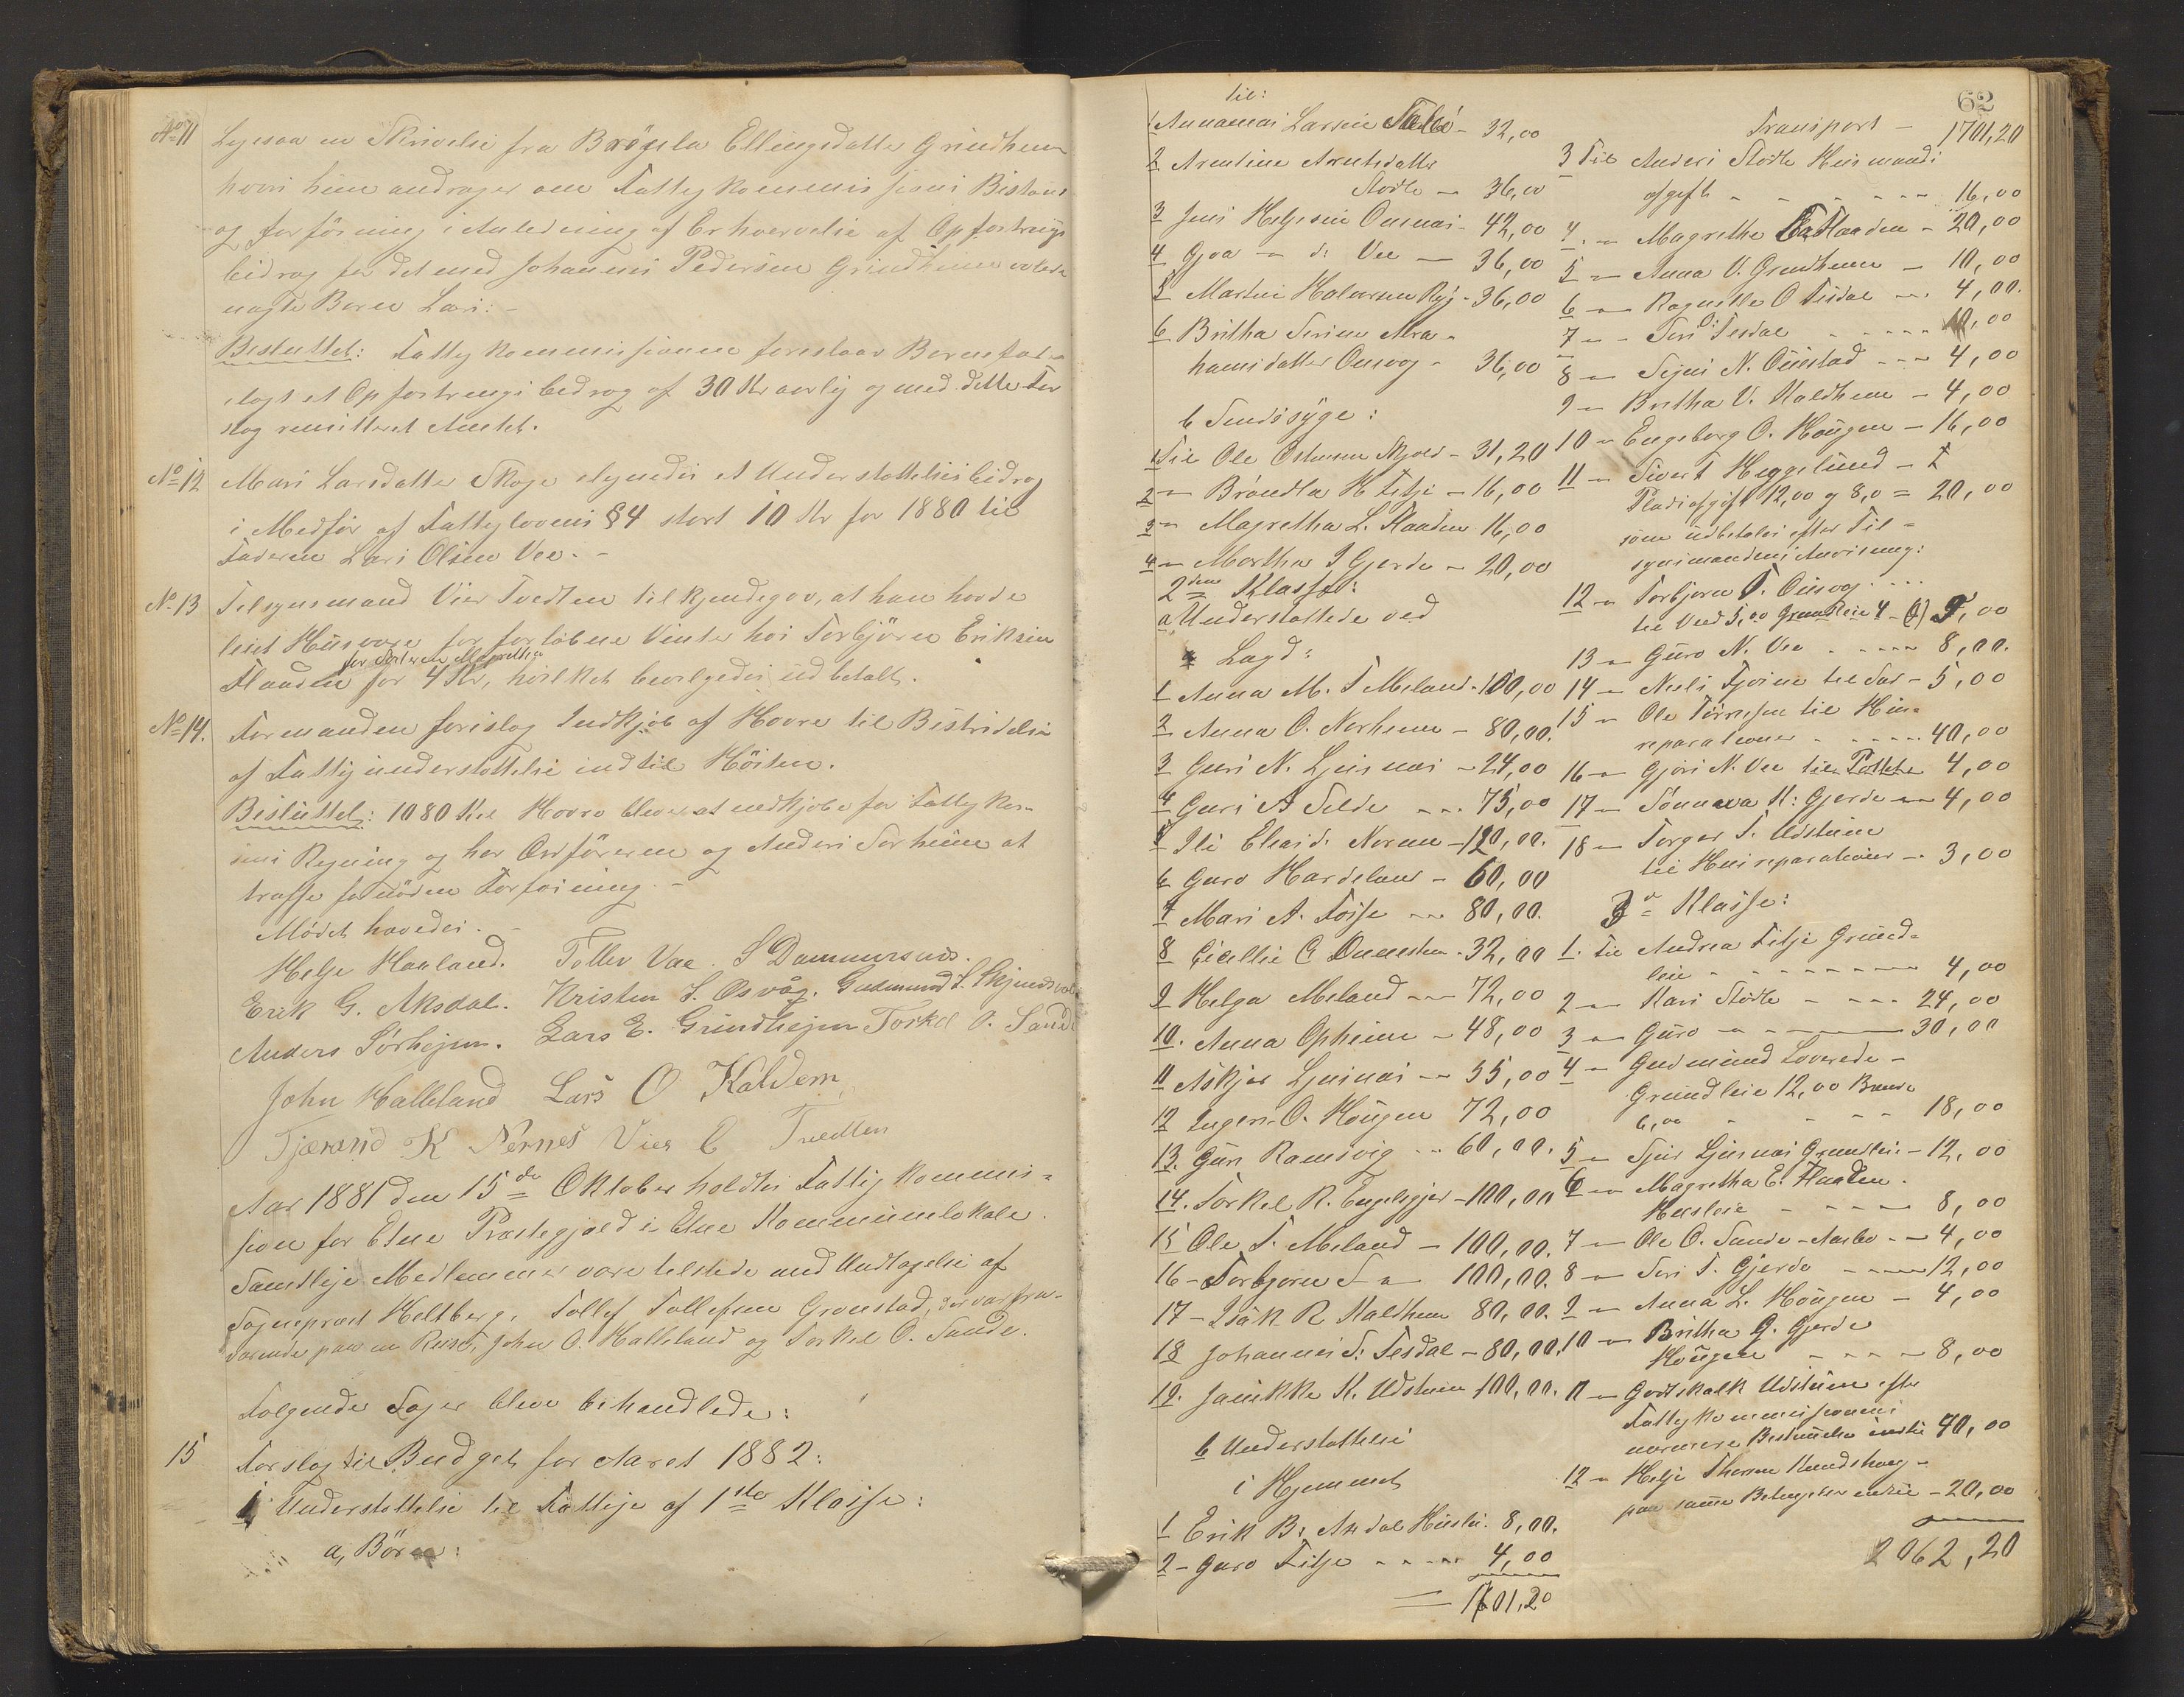 No 11 Lignaa en Skrivelse fra Brøyela Ellingsdatter Grindheim
hvori hun andrager om Fattigkommissionens Bistand
og forføining i Anledning af Erhvervelse af Opfostrings
bidrag for det med Johannes Pedersen Grindheim
Barn Lars: -
Besluttet: Fattigkommissionen foreslaar Barnefad-
et Opfostringsbidrag af 30 Kr aarlig og med dette For
slag remitteret Amtet.
No 12 Mari Larsdatter Skoge et Understøttelsesbidrag
i Medfør af Fattiglovens § 4 stort 10 Kr for 1880 til
Faderen Lars Olsen Vee. -
No 13 Tilsynsmand Vier Tvedten tilkjendegav, at han havde
leiet Huusvære for forløbne Vinter hos Torbjørn Eriksen
for Søsteren Magretha
Flaaden for 4 Kr, hvilket bevilgedes udbetalt.
No 14. Formanden foreslog Indkjøb af Havre til Bestridelse
af Fattigunderstøttelse indtil Høsten.
Besluttet: 1080 Kil Havre bliver at indkjøbe for Fattigkas-
sens Regning og har Ordføreren og Anders Sørheim at
træffe fornøden Forføining. -
Mødet hævedes. -
Helge Haaland. Tollev Vae. S Dammersnes.
Erik G. Aksdal. Kristen S. Osvåg. Gudmund S. Skjensvold
Anders Sørhejm. Lars E. Grindhejm Torkel O. Sande
John Halleland Lars O Kaldem
Tjerand K Nernes Vier C Tvedten
Aar 1881 den 15de Oktober holdtes Fattigkommis-
sion for Etne Præstegjæld i Etne Kommunelokale.
Samtlige Medlemmer vare tilstede med Undtagelse af
Sognepræst Heltberg, Tollef Tollefsen Grønstad, der var fra-
værende paa en Reise, John O. Halleland og Torkel O. Sande.
Følgende Sager bleve behandlede:
15 Forslag til Budget for Aaret 1882:
1 Understøttelse til Fattige af 1ste Klasse:
a, Børn:
62
til:
1 Annamai Larsen - 32,00
2 Arentine Arentsdatter
Stødle - 36,00
3 Jens Helgesen Ousnæs - 42,00
4 Gjøa - d. Vee - 36,00
5 Martin Halvorsen Ryg - 36,00
6 Britha Serine Abra-
hamsdatter Ousvog - 36,00
b Sindssyge:
1 Til Ole Ostensen Skjold - 31,20
2 - Brøndla H Fitje - 16,00
3 - Magretha L. Flaaden 16,00
4 - Martha I Gjerde - 20,00
2den Klasse:
a Understøttede ved
Lagd:
1 Anna M. T Meland - 100,00
2 Anna O. Norheim - 80,00.
3 Guri N. Ljusnæs - 24,00
4 Guri A Selde - 75,00
5 Ili Eliasd. Norem - 120,00.
6 Guro Hardeland - 60,00
7 Mari A. Fosse - 80,00.
8 Cicellie C - 32,00
9 Helga Meland - 72,00
10. Anna Opheim - 48,00
11 Askjer Ljusnæs - 55,00
12 Ingeri O. Hougen 72,00
13. Guri Ramsvig - 60,00.
14. Torkel R. Engelsgjer - 100,00
15 Ole T. Meland - 100,00.
16 - Torbjørn S - 100,00.
17 - Isak R Kaldhem 80,00.
18 Johannes S. Tesdal - 80,00.
19. Janikke K. Udstuen 100,00.
b Understøttelse
i Hjemmet
1 Erik B. Axdal Husleie 8,00.
2 - Guro Fitje - 4,00
= 1701,20
Transport - 1701,20
3 Til Anders Stødle Husmands
afgift - 16,00
4. - Magrethe E Flaaden - 20,00
5 - Anna V. Grindheim - 10,00
6 - Ragnilla O Tesdal - 4,00.
7 - Siri O: Tesdal - 10,00
8 - Signi N. Øiestad - 4,00
9 - Britha V. Kaldheim - 4,00
10 - Engeborg O. Hougen - 16,00
11 - Sivert Heggelund -
Pladsafgift 12,00 og 8,0 = 20,00
som udbetales efter Til-
synsmandens Anvisning:
12 - Torbjørn T. Ousvog
til Ved 5,00 Grundleie 4 - 9,00
13 - Guro N. Vee - 8,00.
14 - Neeli Fjøsne til Sæd - 5,00
15 - Ole Tørresen til Huus-
reparationer - 40,00
16 - Gjøri N. Vee til Potteter 4,00
17 - Sønneva K: Gjerde - 4,00
18 - Torger T. Udstuen
til Huusreparationer - 3,00
3die Klasse:
1. Til Andrea Fitje Grund-
leie - 4,00
2 - Kari Stødle - 24,00
3 - Guro - - 30,00
4 - Gudmund Loverede -
Grundleie 12,00 Brænde
6,00 - 18,00
5 - Sjur Ljusnæs Grundleie - 12,00
6 - Magretha E. Flaaden.
Husleie - 8,00
7 - Ole O. Sande - Aarbo - 4,00
8 - Siri T. Gjerde - 12,00
9 - Anna L. Hougen - 4,00
10 - Britha G. Gjerde
Hougen - 8,00
11 - Godtskalk Udstuen efter
Fattigkommissionens
nærmere Bestemmelse indtil 40,00
12 - Helge Thorsen Rundhaug -
paa samme Betingelser indtil - 20,00
2062,20